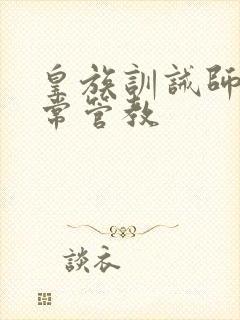 皇族訓誡師
常管教
談衣